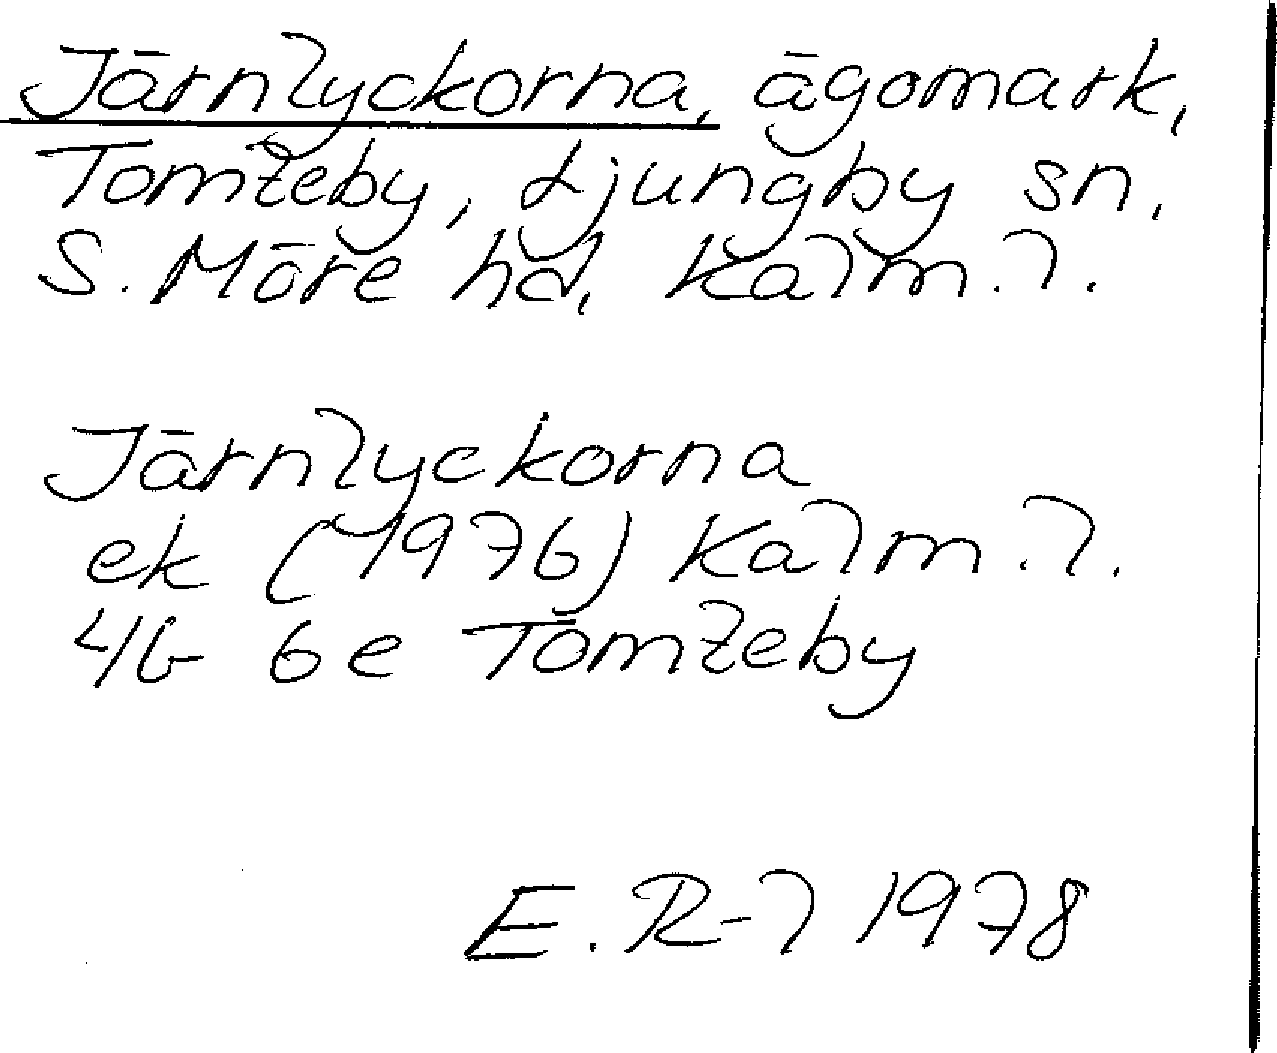 Järnlyckorna, ägomark,
Tomteby, Ljungby sn,
S. Möre hd, Kalm. l.
Järnlyckorna
ek (1976) Kalm. l.
4G 6e Tomteby
E. R-l 1978